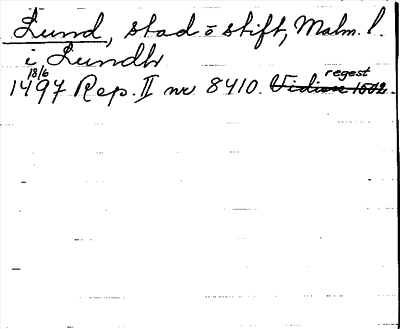 Lund, stad o stift, Malm. l.
i Lundh
18/6 regest
1497 Rep. II nr 8410. Vidisse 1502.